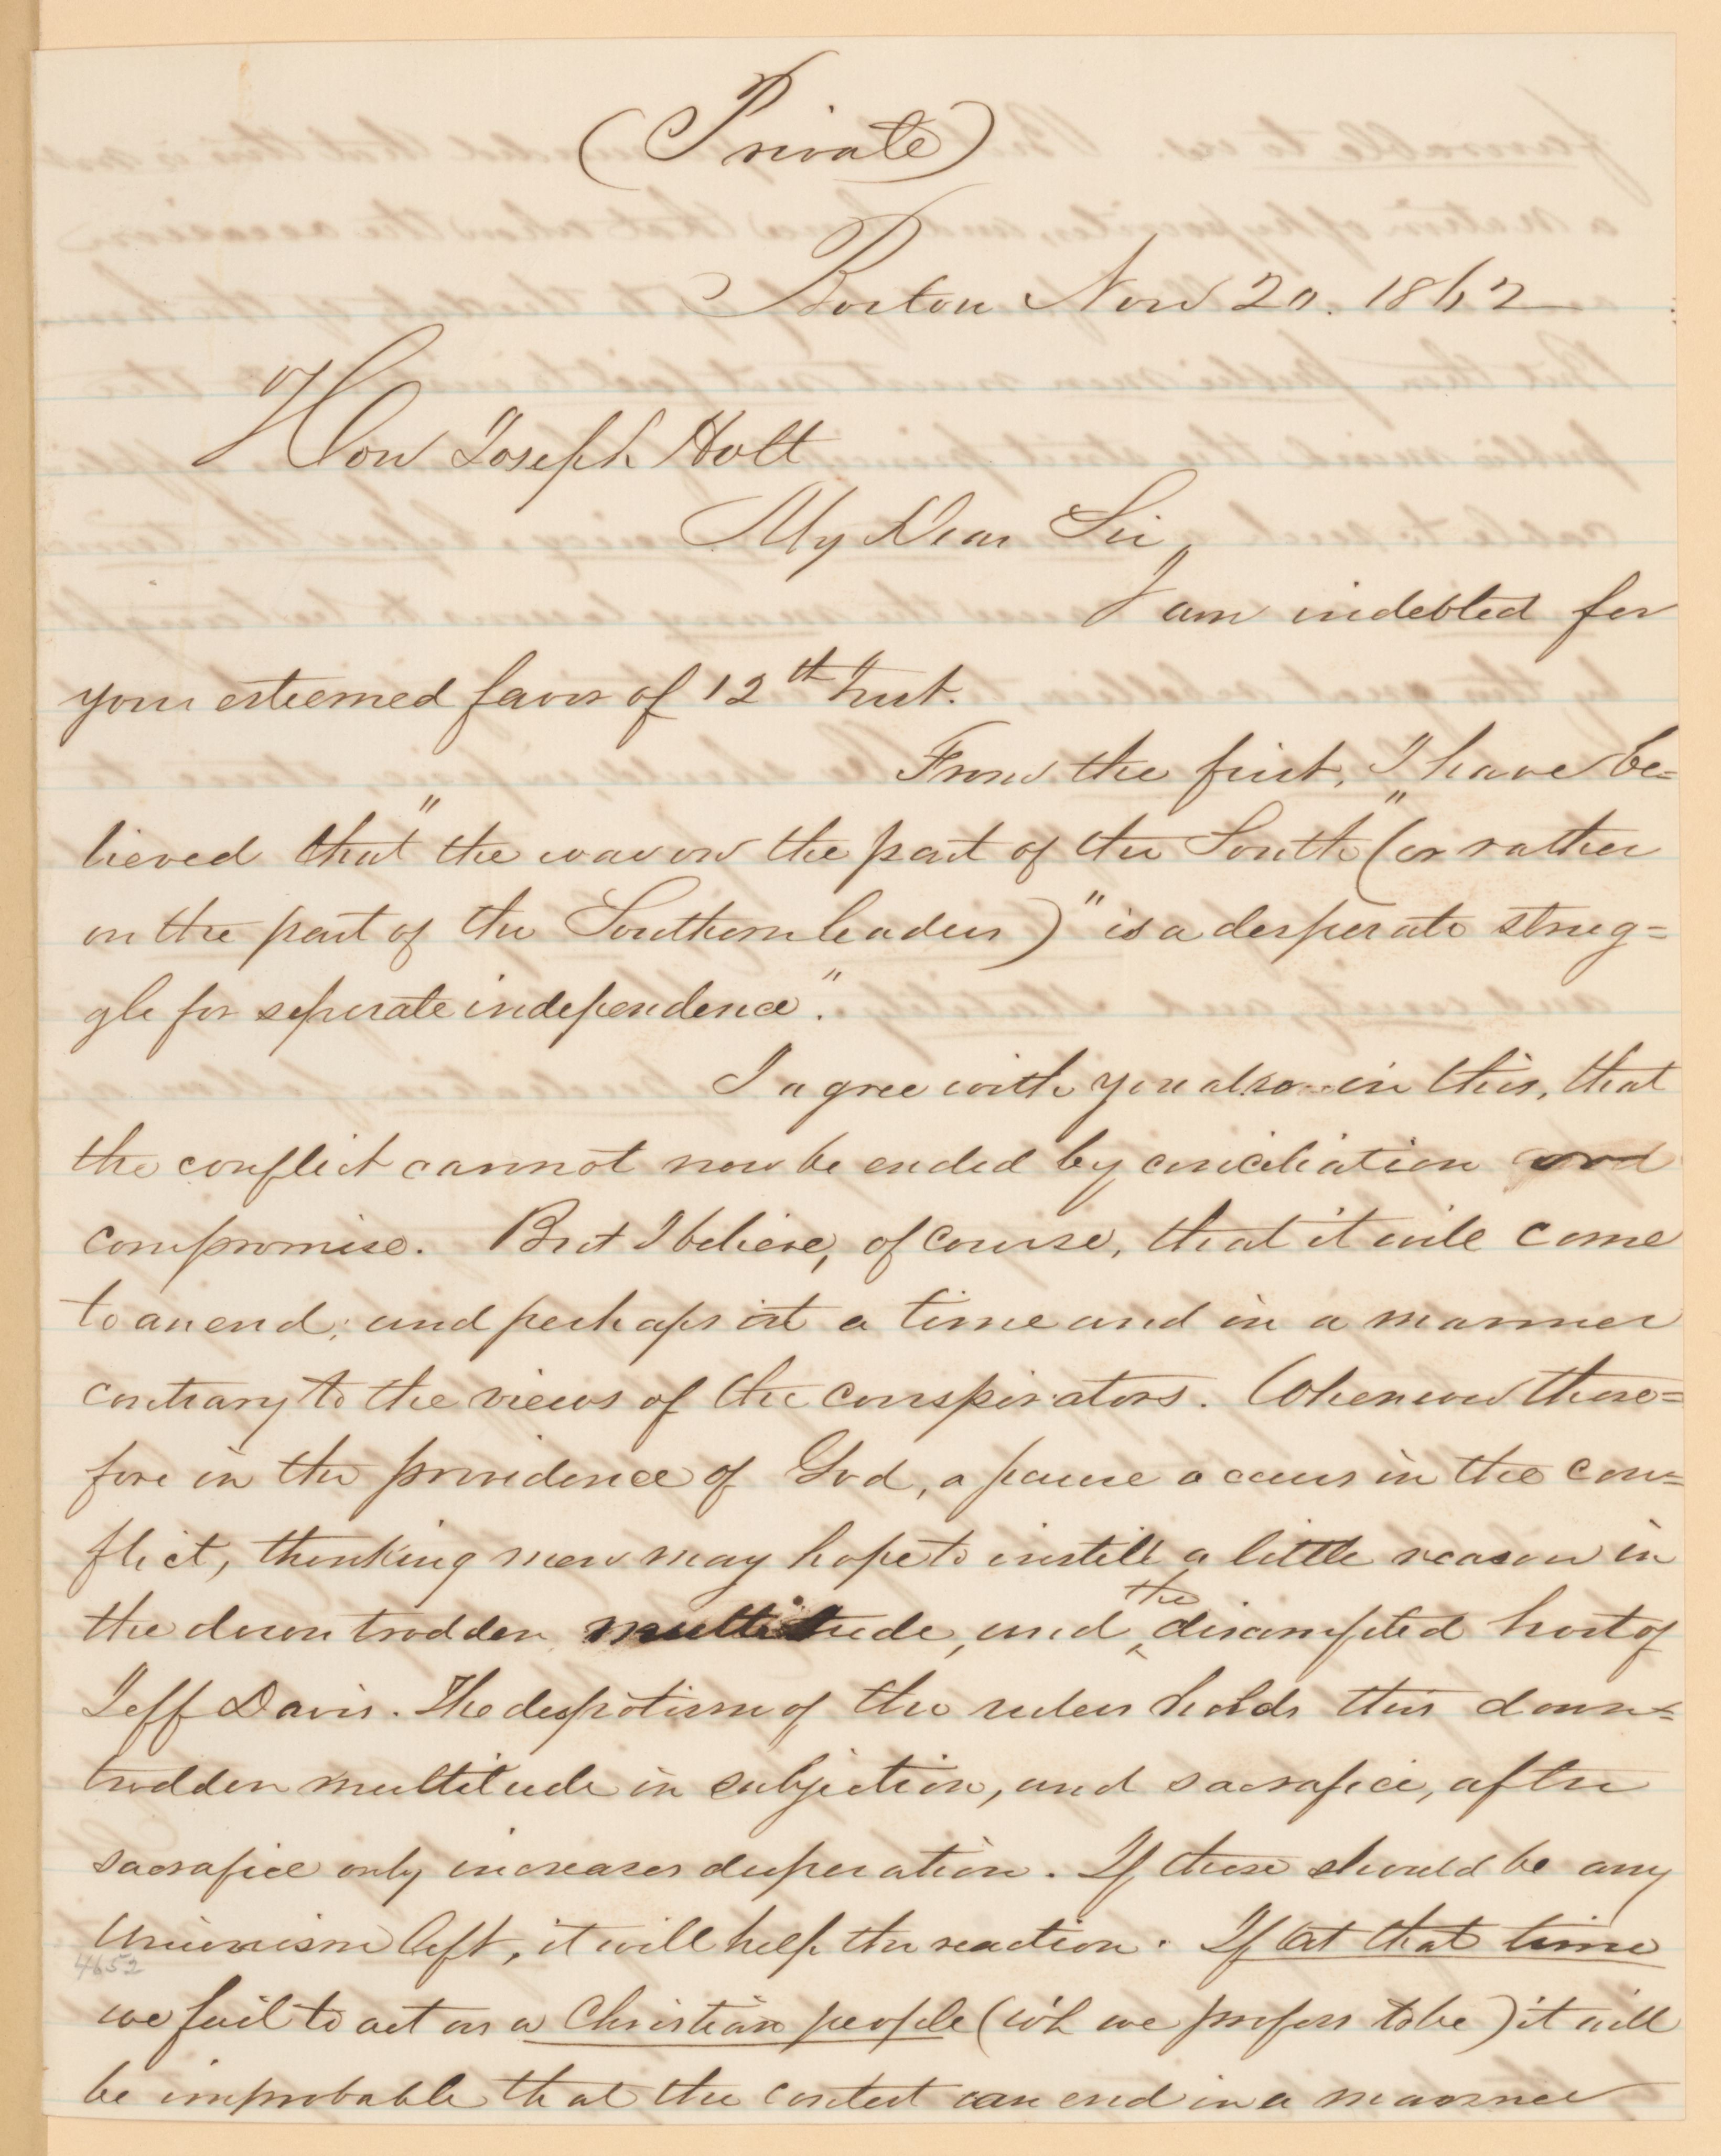 (Private)
Boston Nov 20. 1862
Hon Joseph Holt
My Dear Sir,
I am indebted for
your esteemed favor of 12th Inst.
From the first, I have be=
lieved that "the war on the part of the South" (or rather
on the part of the Southern leaders) "is a desperate strug=
gle for seperate independence".
I agree with you also in this, that
the conflict cannot now be ended by conciliation and
compromise. But I believe, of course, that it will come
to an end; and perhaps at a time and in a manner
contrary to the views of the conspirators. When now there=
fore in the providence of God, a pause occurs in the con=
flict, thinking men may hope to instill a little reason in
the down trodden multitude, and the disrupted host of
Jeff Davis. The despotism of the rulers holds this down=
trodden multitude in subjection, and sacrafice, after
sacrafice only increases desperation. If there should be any
Unionism left, it will help the reaction. If at that time
4652
we fail to act as a Christian people (wh we profess to be) it will
be improbable that the contest can end in a manner